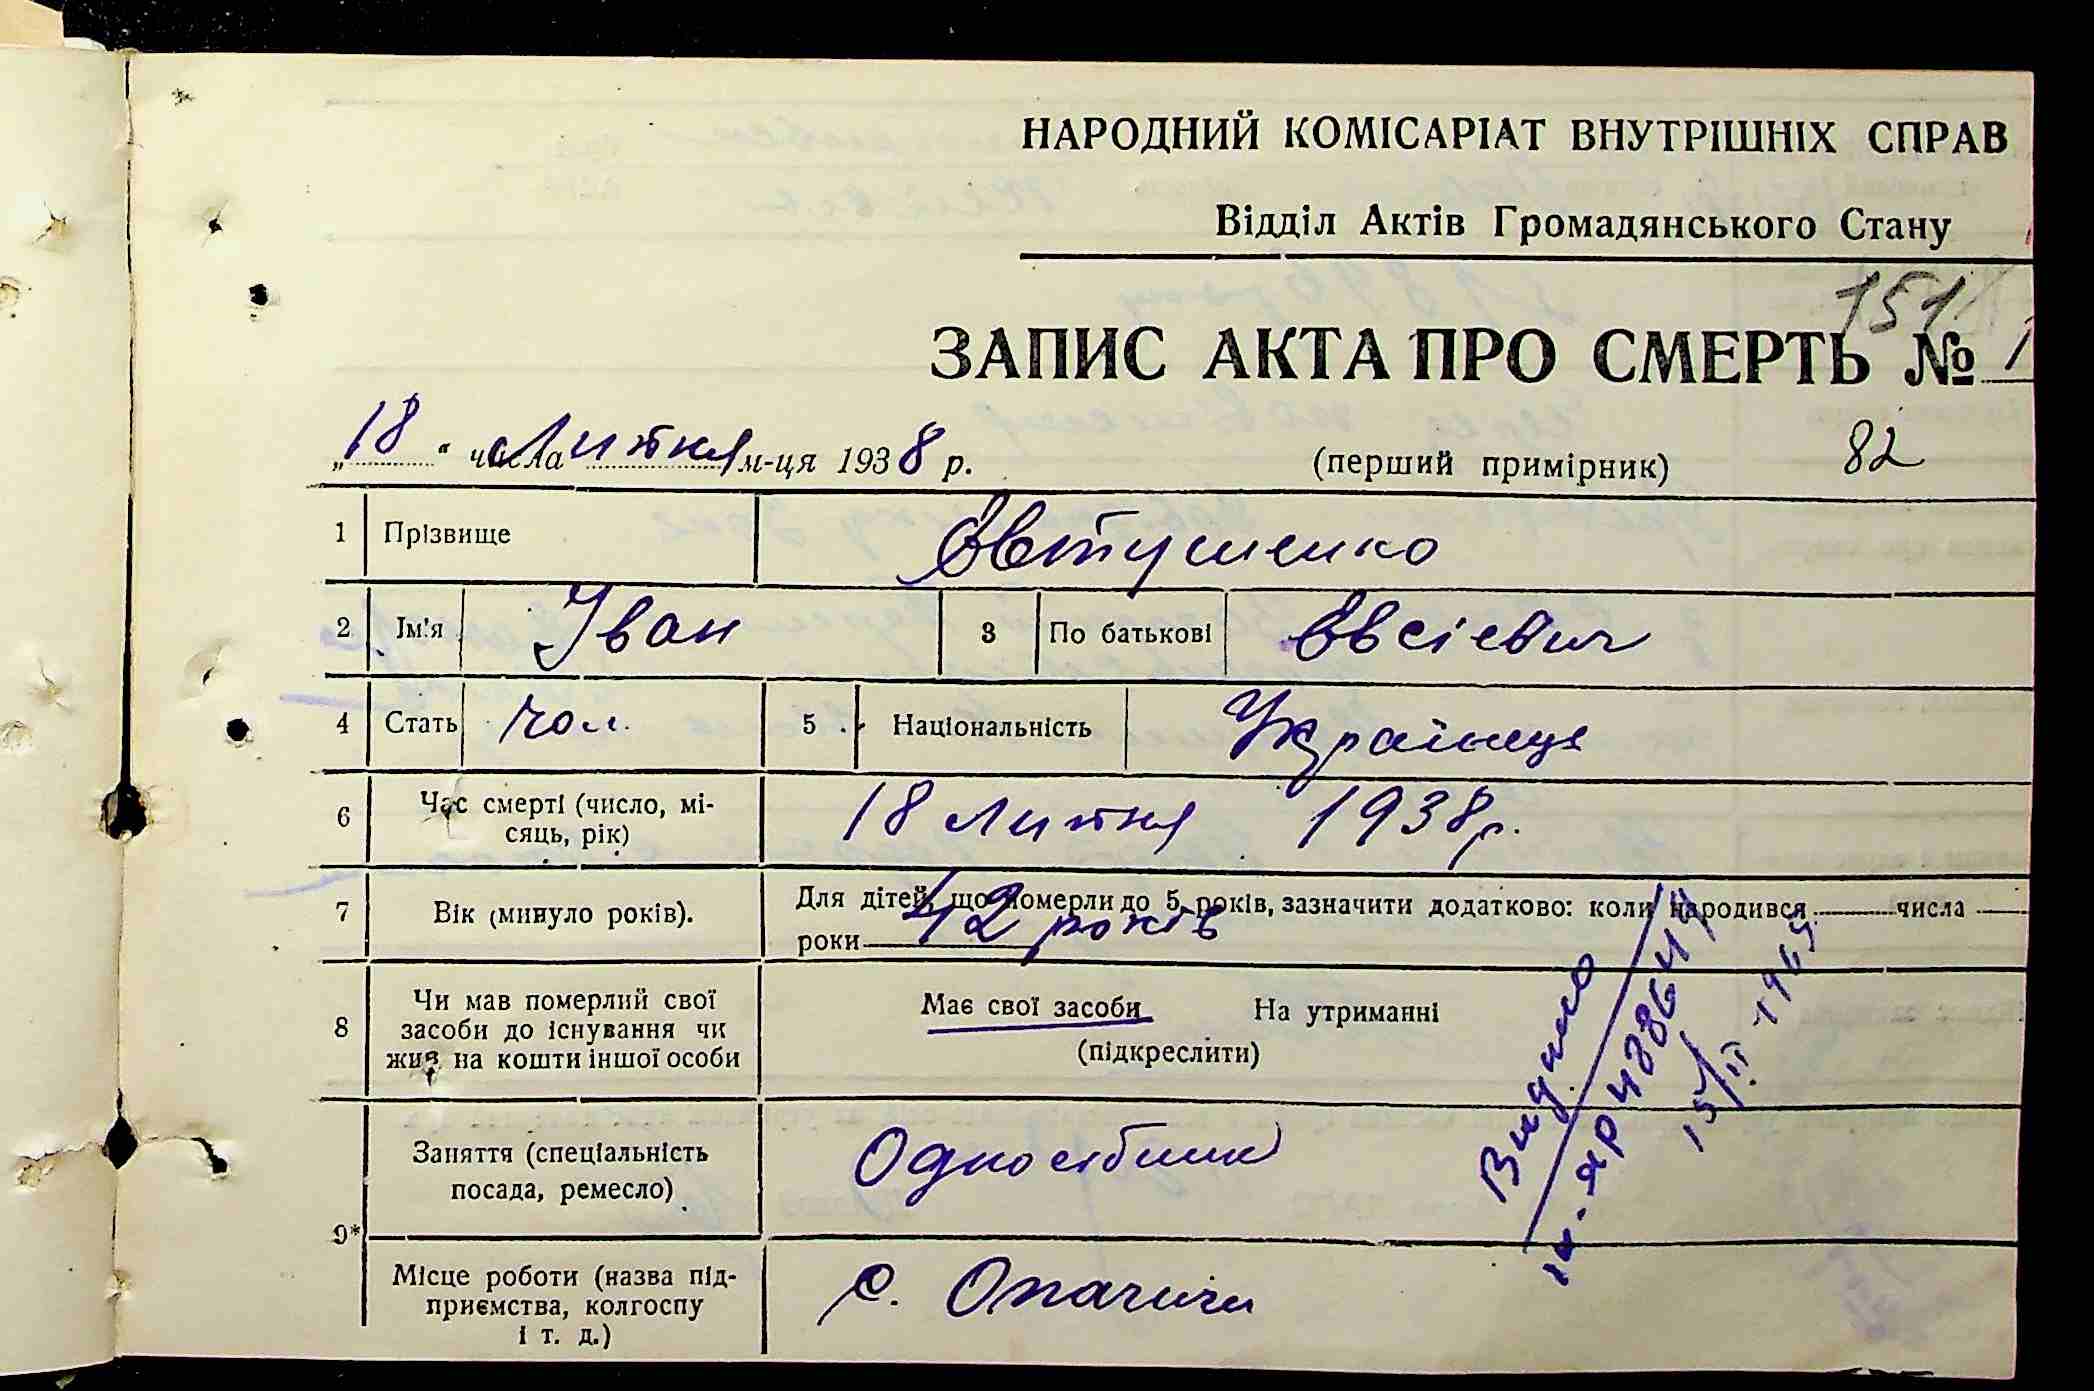 НАРОДНИЙ КОМІСАРІАТ ВНУТРІШНІХ СПРАВ
Відділ Актів Громадянського Стану
151
ЗАПИС АКТА ПРО СМЕРТЬ № 1
„18“ числа Лютня м-ця 1938 р. (перший примірник) 82
1 Прізвище Євтушенко
2 Ім'я Іван 3 По батькові Євсієвич
4 Стать чол. 5 Національність Українець
6 Час смерті (число, мі-
сяць, рік) 18 Лютня 1938р.
7 Вік (минуло років). Для дітей, що померли до 5 років, зазначити додатково: коли народився числа
роки 42 років
8 Чи мав померлий свої
засоби до існування чи
жив на кошти іншої особи
Має свої засоби На утриманні
(підкреслити)
9* Заняття (спеціальність
посада, ремесло) Одноосібник
Місце роботи (назва під-
приємства, колгоспу
і т. д.) с. Опачичи
Видано
15/III